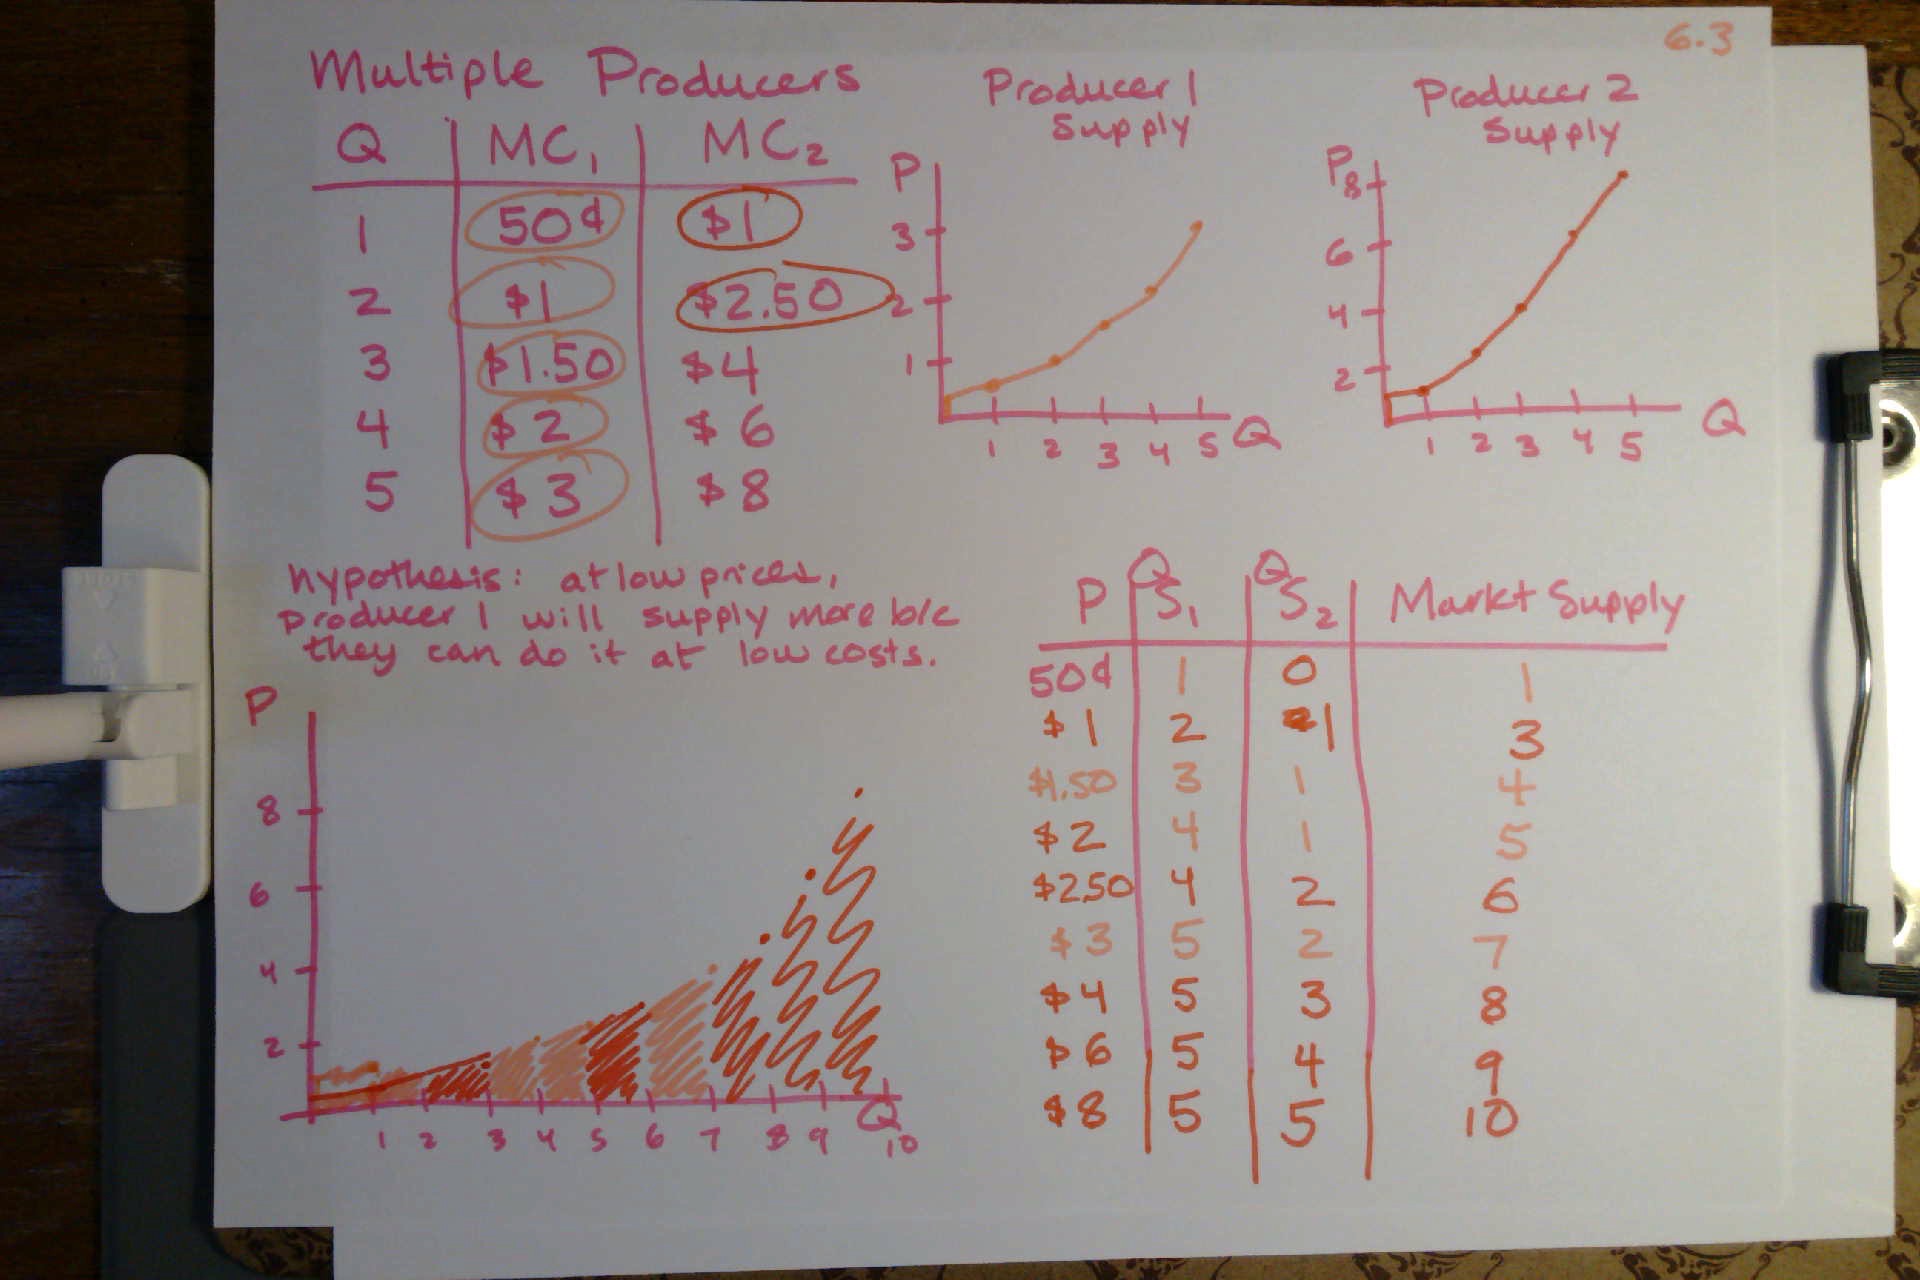 6.3
Multiple Producers
Q MC1 MC2
1 50¢ $1
2 $1 $2.50
3 $1.50 $4
4 $2 $6
5 $3 $8
Producer 1
Supply
P
3
2
1
1 2 3 4 5 Q
Producer 2
Supply
P
8
6
4
2
1 2 3 4 5 Q
hypothesis: at low prices,
producer 1 will supply more b/c
they can do it at low costs.
P
8
6
4
2
1 2 3 4 5 6 7 8 9 10
Q
P QS1 QS2 Markt Supply
50¢ 1 0 1
$1 2 1 3
$1.50 3 1 4
$2 4 1 5
$2.50 4 2 6
$3 5 2 7
$4 5 3 8
$6 5 4 9
$8 5 5 10